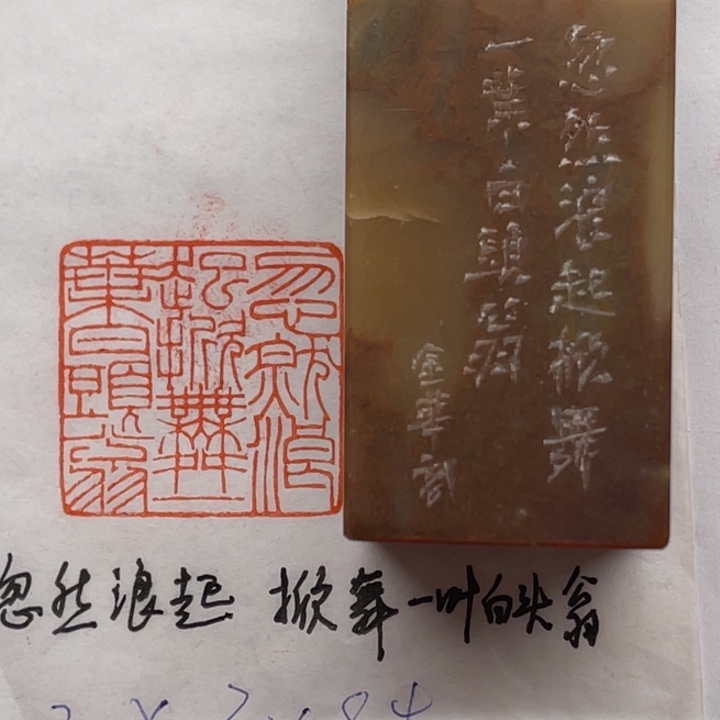 忽然浪
起掀舞一
葉白頭翁
忽然浪起掀舞
一葉白頭翁
金華刻
忽然浪起 掀舞一叶白头翁